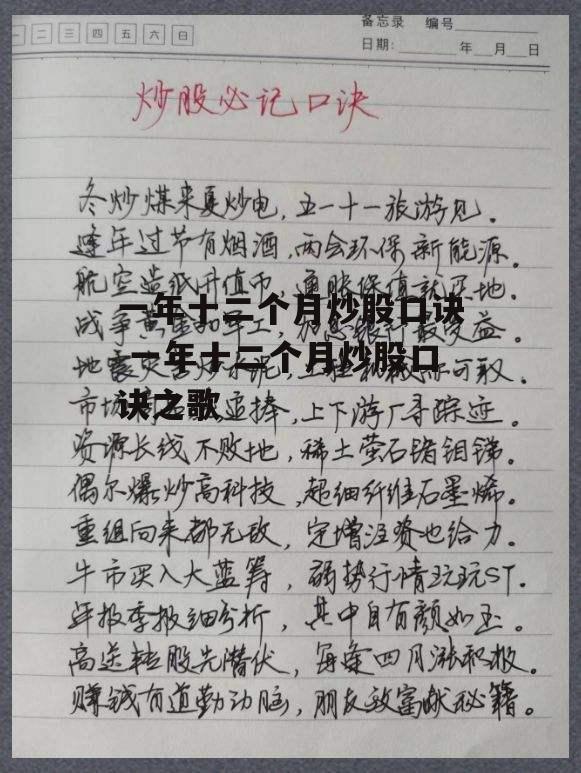 一 二 三 四 五 六 日
备忘录 编号
日期: 年 月 日
炒股必记口诀
冬炒煤来夏炒电，五一十一旅游见。
逢年过节有烟酒，两会环保新能源。
航空造纸升值币，通胀保值就买地。
战争黄金和军工，加息银行最受益。
地震灾害炒水泥，工程机械亦可取。
市场
追捧，上下游厂寻踪迹。
资源长线不败地，稀土萤石锗钼锑。
偶尔爆炒高科技，超细纤维石墨烯。
重组向来都无敌，定增注资也给力。
牛市买入大蓝筹，弱势行情玩玩ST.
年报季报细分析，其中自有颜如玉。
高送转股先潜伏，每逢四月涨积极。
赚钱有道勤动脑，朋友致富献秘籍。
一年十二个月炒股口诀
一年十二个月炒股口
诀之歌